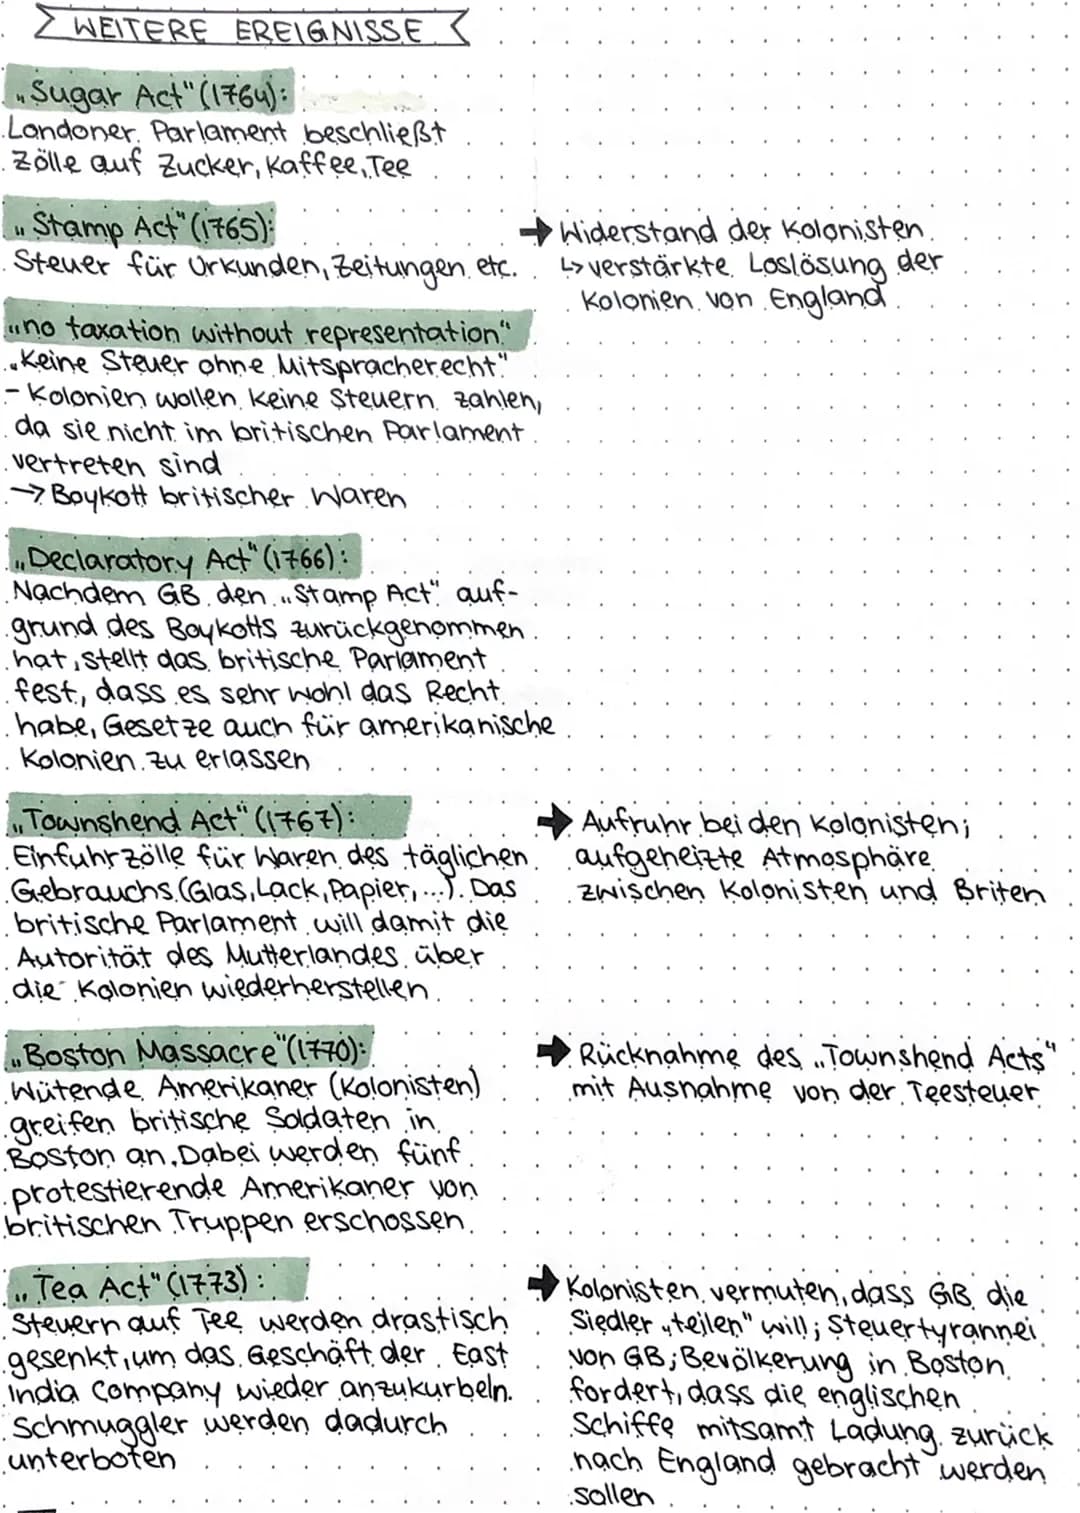 WEITERE EREIGNISSE
„Sugar Act" (1764):
Londoner Parlament beschließt
Zölle auf Zucker, Kaffee, Tee
„Stamp Act" (1765):
Steuer für Urkunden, Zeitungen etc.
→ Widerstand der Kolonisten
↳ verstärkte Loslösung der
Kolonien von England
„no taxation without representation"
„Keine Steuer ohne Mitspracherecht"
- Kolonien wollen keine Steuern zahlen,
da sie nicht im britischen Parlament
vertreten sind
→ Boykott britischer Waren
„Declaratory Act" (1766):
Nachdem GB den „Stamp Act" auf-
grund des Boykotts zurückgenommen
hat, stellt das britische Parlament
fest, dass es sehr wohl das Recht
habe, Gesetze auch für amerikanische
Kolonien zu erlassen
„Townshend Act" (1767):
Einfuhrzölle für Waren des täglichen
Gebrauchs (Glas, Lack, Papier, ...). Das
britische Parlament will damit die
Autorität des Mutterlandes über
die Kolonien wiederherstellen
→ Aufruhr bei den Kolonisten;
aufgeheizte Atmosphäre
zwischen Kolonisten und Briten
„Boston Massacre" (1770):
Wütende Amerikaner (Kolonisten)
greifen britische Soldaten in
Boston an. Dabei werden fünf
protestierende Amerikaner von
britischen Truppen erschossen
→ Rücknahme des „Townshend Acts"
mit Ausnahme von der Teesteuer
„Tea Act" (1773):
Steuern auf Tee werden drastisch
gesenkt, um das Geschäft der East
India Company wieder anzukurbeln.
Schmuggler werden dadurch
unterboten
→ Kolonisten vermuten, dass GB die
Siedler „teilen" will; Steuertyrannei
von GB; Bevölkerung in Boston
fordert, dass die englischen
Schiffe mitsamt Ladung zurück
nach England gebracht werden
sollen